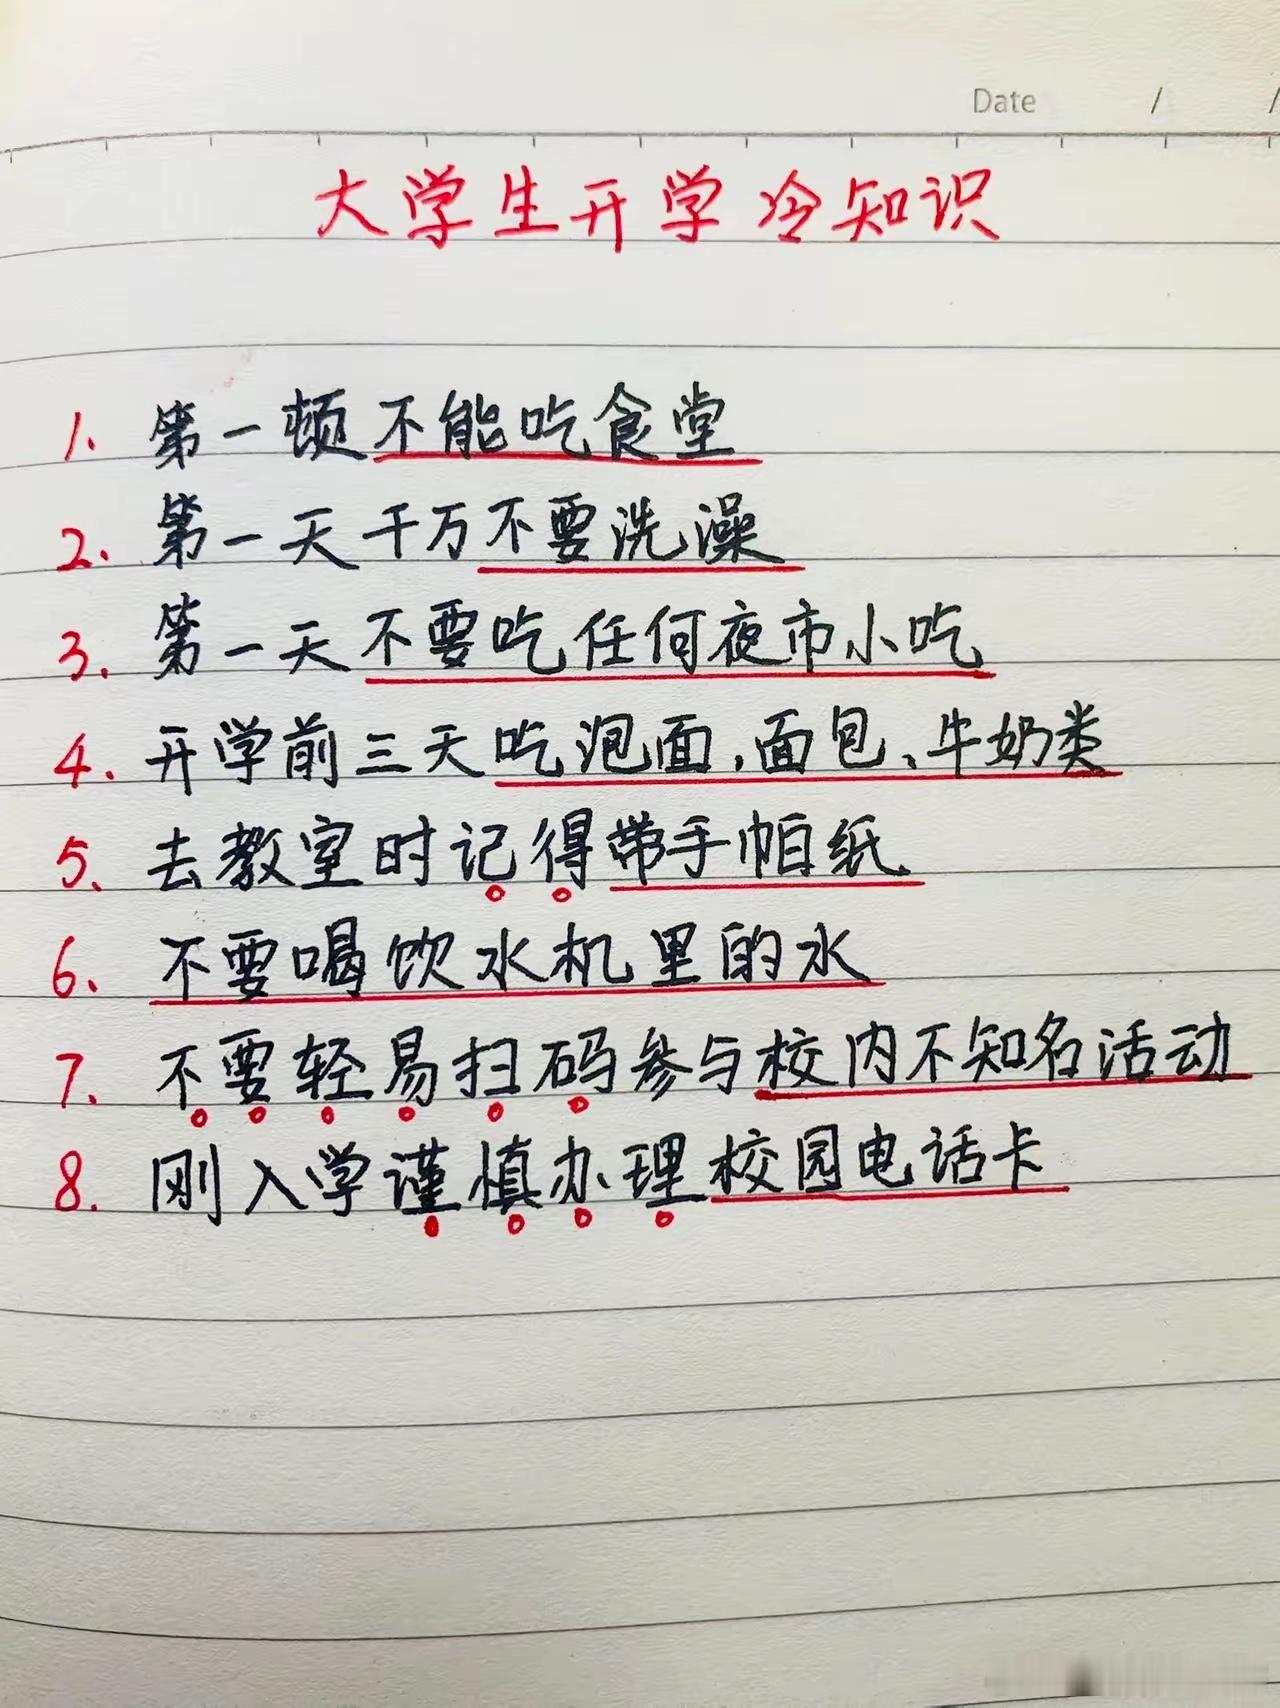 Date / /
大学生开学冷知识
1. 第一顿不能吃食堂
2. 第一天千万不要洗澡
3. 第一天不要吃任何夜市小吃
4. 开学前三天吃泡面,面包、牛奶类
5、去教室时记得带手帕纸
6、不要喝饮水机里的水
7. 不要轻易扫码参与校内不知名活动
8. 刚入学谨慎办理校园电话卡